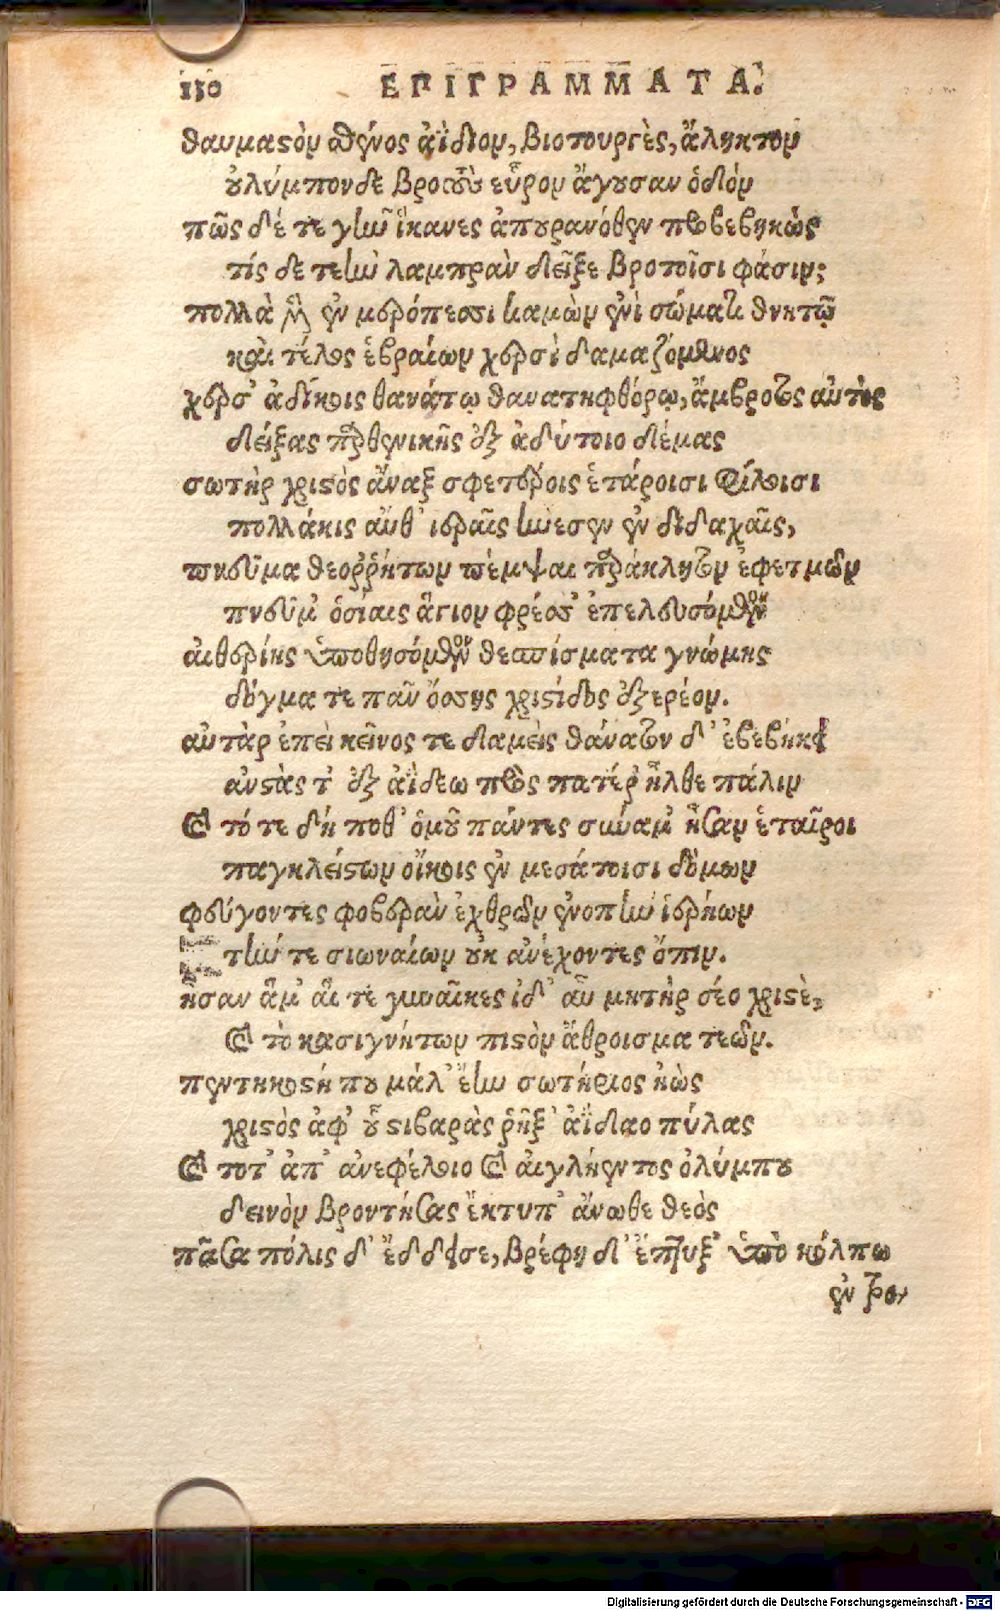 130 ΕΠΙΓΡΑΜΜΑΤΑ.
θαυμαστὸν σθένος ἀΐδιον, βιοτουργὲς, ἄληκτον
οὐλύμπονδε βροτοῖς εὗρον ἄγουσαν ὁδὸν
πῶς δέ τε γῆν ἵκανες ἀπουρανόθεν προβεβηκὼς
τίς δε τεὴν λαμπρὰν δεῖξε βροτοῖσι φάσιν;
πολλὰ ἐν μερόπεσσι καμὼν ἐνὶ σώματι θνητῷ
καὶ τέλος ἑβραίων χερσὶ δαμαζόμενος
χερσ' ἀδίκοις θανάτῳ θανατηφθόρῳ, ἄμβροτος αὐτὸς
δείξας παρθενικῆς ἐξ ἀδύτοιο δέμας
σωτὴρ χριστὸς ἄναξ σφετέροις ἑτάροισι φίλοισι
πολλάκις αὖθ' ἱεραῖς ἤνεσεν ἐν διδαχαῖς,
πνεῦμα θεορρήτων πέμψαι παράκλητον ἐφετμῶν
πνεῦμ' ὁσίαις ἅγιον φρέσσ' ἐπελευσόμενον
αἰθερίης ὑποθησόμενον θεσπίσματα γνώμης
δόγμα τε πᾶν ὅσσης χριστίδος ἐξερέον.
αὐτὰρ ἐπεὶ κεῖνος τε δαμεὶς θάνατον δ' ἐβεβήκει
ἀνστὰς τ' ἐξ ἀΐδεω πρὸς πατέρ' ἦλθε πάλιν
καὶ τό τε δή ποθ' ὁμοῦ πάντες συνάμ' ἦσαν ἑταῖροι
παγκλείστων οἴκοις ἐν μεσάτοισι δόμων
φεύγοντες φοβερὰν ἐχθρῶν ἐνοπὴν ἱερήων
τήν τε σιωναίων οὐκ ἀνέχοντες ὄπιν.
ἦσαν ἅμ' αἵ τε γυναῖκες ἰδ' αὖ μητὴρ σέο χριστὲ,
καὶ τὸ κασιγνήτων πιστὸν ἄθροισμα τεῶν.
πεντηκοστή που μάλ' ἔην σωτήριος ἠὼς
χριστὸς ἀφ' οὗ στιβαρὰς ῥῆξ' ἀΐδαο πύλας
καὶ τοτ' ἀπ' ἀνεφέλοιο καὶ αἰγλήεντος ὀλύμπου
δεινὸν βροντήσας ἔκτυπ' ἄνωθε θεὸς
πᾶσα πόλις δ' ἔδδεισε, βρέφη δ' ἔπτυξ' ὑπὸ κόλπω
Digitalisierung gefördert durch die Deutsche Forschungsgemeinschaft - DFG